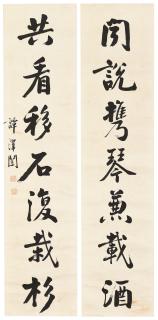 聞說携琴兼載酒
共看移石復栽杉
譚澤闓